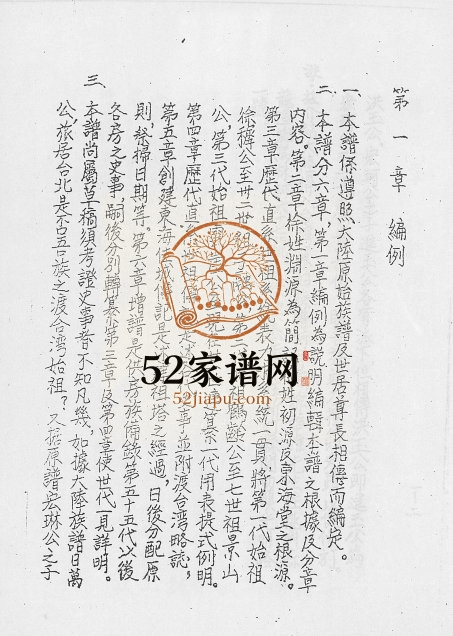 第一章 編例
一、本譜係遵照大陸原始族譜及世居尊長相傳而編定。
二、本譜分六章，第一章編例為說明編輯本譜之根據及分章
內容。第二章徐姓淵源為簡 姓初源及東海堂之根源。
第三章歷代直系 祖 統一貫，將第一代始祖
徐稺公至卅二世 公 第 鶴齡公至七世祖景山
公，第三代始祖 現在世 一代用表提式例明。
第四章歷代直系 事並附渡台灣略誌，
第五章創建東海 祖塔之經過，日後分配原
則，祭掃日期等。第六章增譜是供 族備錄第五十五代以後
各房之史事，嗣後分別轉 第三章及第四章使世代一見詳明。
三、本譜尚屬草稿須考證史事者不知凡幾，如據大陸族譜日萬
公，旅居台北是否吾族之渡台灣始祖？又據原譜宏琳公之子
52家谱网
52jiapu.com